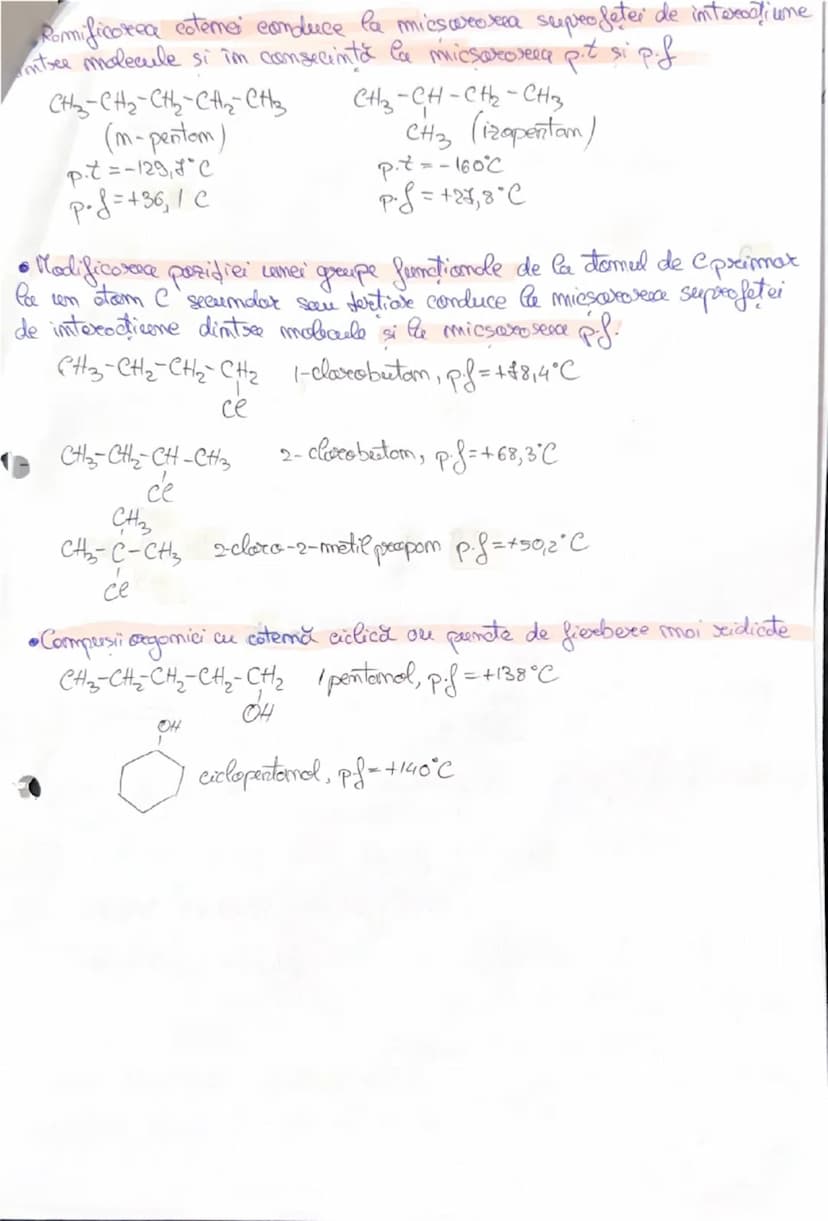 Ramificarea catenei conduce la micșorarea suprafeței de interacțiune
între molecule si în consecință la micșorarea p.t și p.f
CH3-CH2-CH2-CH2-CH3 CH3-CH-CH2-CH3
(n-pentan) CH3 (izopentan)
p.t=-129,7°C p.t=-160°C
p.f=+36,1 C p.f=+27,8°C
• Modificarea poziției unei grupe funcționale de la atomul de C primar
la un atom C secundar sau terțiar conduce la micșorarea suprafeței
de interacțiune dintre molecule și la micșorarea p.f.
CH3-CH2-CH2-CH2 1-clorobutan, p.f=+78,4°C
Cl
CH3-CH2-CH-CH3 2-clorobutan, p.f=+68,3°C
Cl
CH3
CH3-C-CH3 2-cloro-2-metil propan p.f=+50,2°C
Cl
• Compusii organici cu catenă ciclică au puncte de fierbere mai ridicate
CH3-CH2-CH2-CH2-CH2 1 pentanol, p.f=+138°C
OH
OH
ciclopentanol, p.f=+140°C